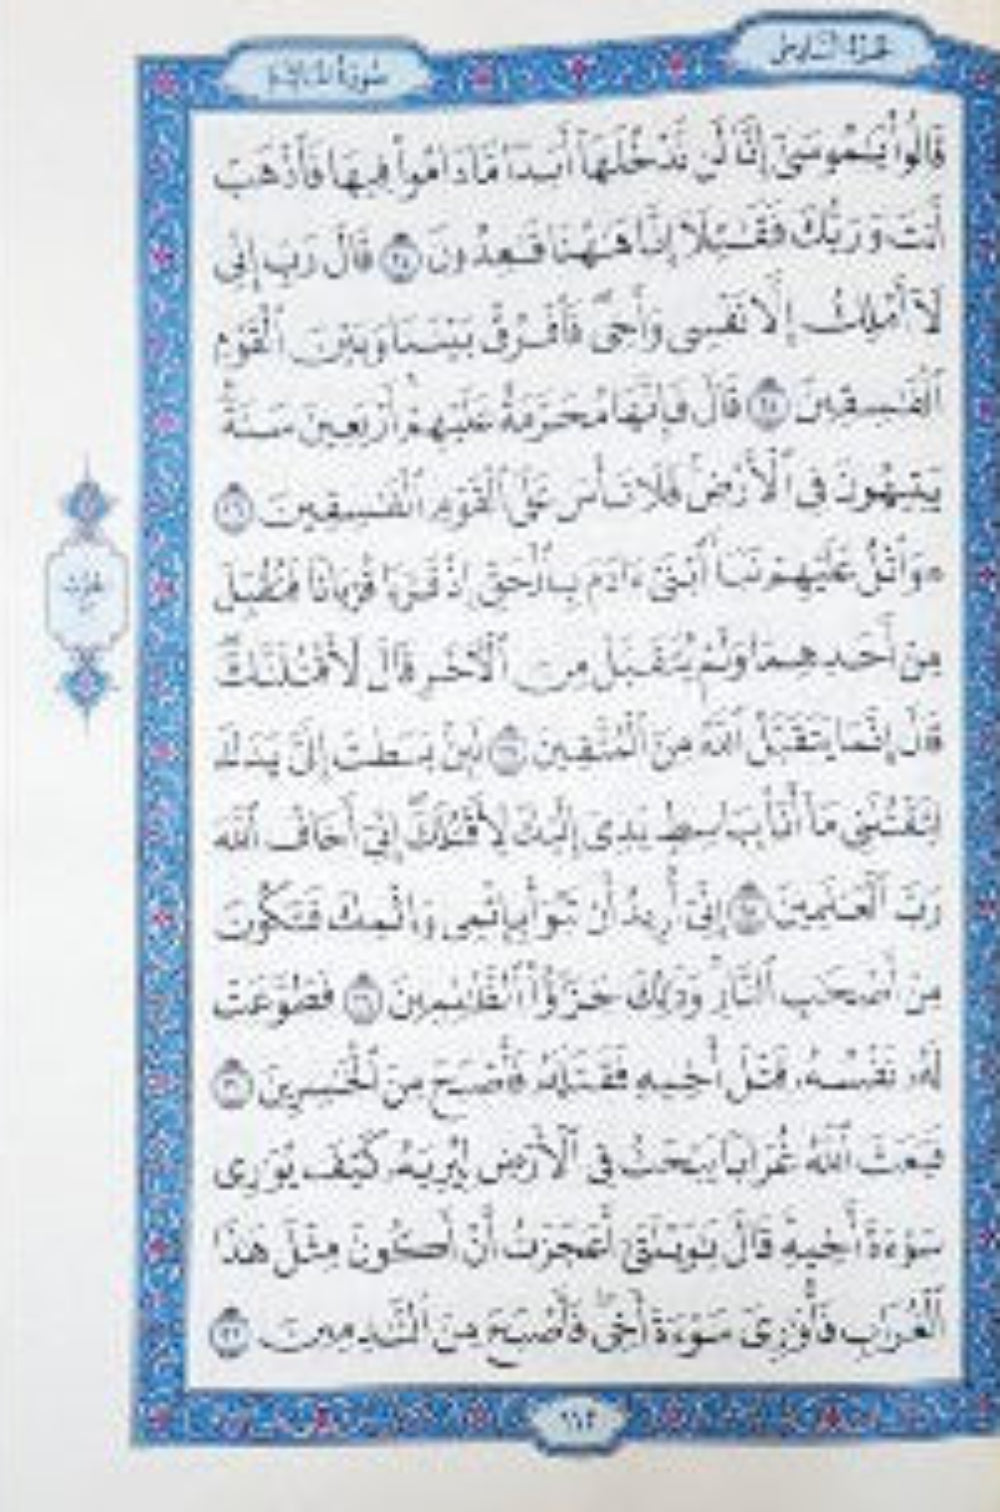 سُورَةُ المَائِدَةِ
الجُزْءُ السَّادِسُ
قَالُواْ يَٰمُوسَىٰٓ إِنَّا لَن نَّدْخُلَهَآ أَبَدٗا مَّا دَامُواْ فِيهَا فَٱذْهَبْ
أَنتَ وَرَبُّكَ فَقَٰتِلَآ إِنَّا هَٰهُنَا قَٰعِدُونَ ٢٤ قَالَ رَبِّ إِنِّي
لَآ أَمْلِكُ إِلَّا نَفْسِي وَأَخِيۖ فَٱفْرُقْ بَيْنَنَا وَبَيْنَ ٱلْقَوْمِ
ٱلْفَٰسِقِينَ ٢٥ قَالَ فَإِنَّهَا مُحَرَّمَةٌ عَلَيْهِمْۛ أَرْبَعِينَ سَنَةٗۛ
يَتِيهُونَ فِي ٱلْأَرْضِۚ فَلَا تَأْسَ عَلَى ٱلْقَوْمِ ٱلْفَٰسِقِينَ ٢٦
۞ وَٱتْلُ عَلَيْهِمْ نَبَأَ ٱبْنَيْ ءَادَمَ بِٱلْحَقِّ إِذْ قَرَّبَا قُرْبَانٗا فَتُقُبِّلَ
مِنْ أَحَدِهِمَا وَلَمْ يُتَقَبَّلْ مِنَ ٱلْأٓخَرِ قَالَ لَأَقْتُلَنَّكَۖ
قَالَ إِنَّمَا يَتَقَبَّلُ ٱللَّهُ مِنَ ٱلْمُتَّقِينَ ٢٧ لَئِنۢ بَسَطتَ إِلَيَّ يَدَكَ
لِتَقْتُلَنِي مَآ أَنَا۠ بِبَاسِطٖ يَدِيَ إِلَيْكَ لِأَقْتُلَكَۖ إِنِّيٓ أَخَافُ ٱللَّهَ
رَبَّ ٱلْعَٰلَمِينَ ٢٨ إِنِّيٓ أُرِيدُ أَن تَبُوٓأَ بِإِثْمِي وَإِثْمِكَ فَتَكُونَ
مِنْ أَصْحَٰبِ ٱلنَّارِۚ وَذَٰلِكَ جَزَٰٓؤُاْ ٱلظَّٰلِمِينَ ٢٩ فَطَوَّعَتْ
لَهُۥ نَفْسُهُۥ قَتْلَ أَخِيهِ فَقَتَلَهُۥ فَأَصْبَحَ مِنَ ٱلْخَٰسِرِينَ ٣٠
فَبَعَثَ ٱللَّهُ غُرَابٗا يَبْحَثُ فِي ٱلْأَرْضِ لِيُرِيَهُۥ كَيْفَ يُوَٰرِي
سَوْءَةَ أَخِيهِۚ قَالَ يَٰوَيْلَتَىٰٓ أَعَجَزْتُ أَنْ أَكُونَ مِثْلَ هَٰذَا
ٱلْغُرَابِ فَأُوَٰرِيَ سَوْءَةَ أَخِيۖ فَأَصْبَحَ مِنَ ٱلنَّٰدِمِينَ ٣١
١١٢